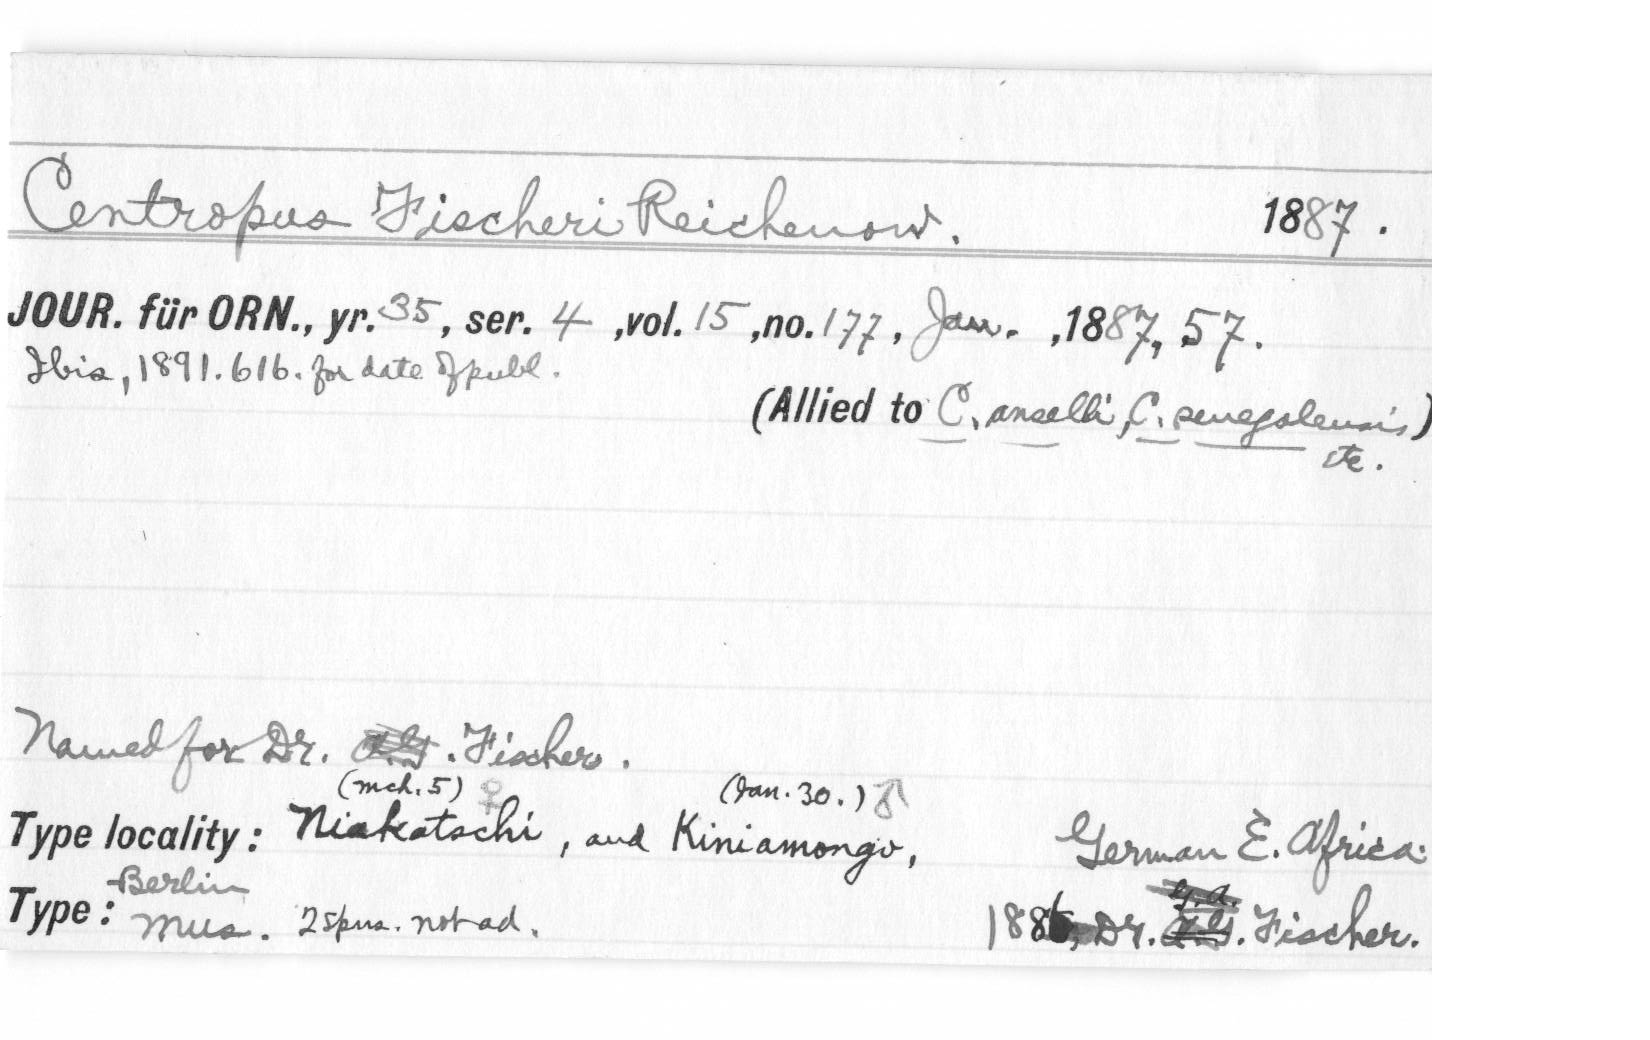 Centropus Fischeri Reichenow. 1887.
JOUR. für ORN., yr. 35, ser. 4, vol. 15, no. 177, Jan., 1887, 57.
Ibis, 1891. 616. for date of publ.
(Allied to C. anselli, C. senegalensis)
etc.
Named for Dr. Fischer.
(Mch. 5) ♀ (Jan. 30.) ♂
Type locality: Niakatschi, and Kiniamongo, German E. Africa.
Berlin
Type: Mus. 2 spns. not ad. 1886, Dr. Fischer.